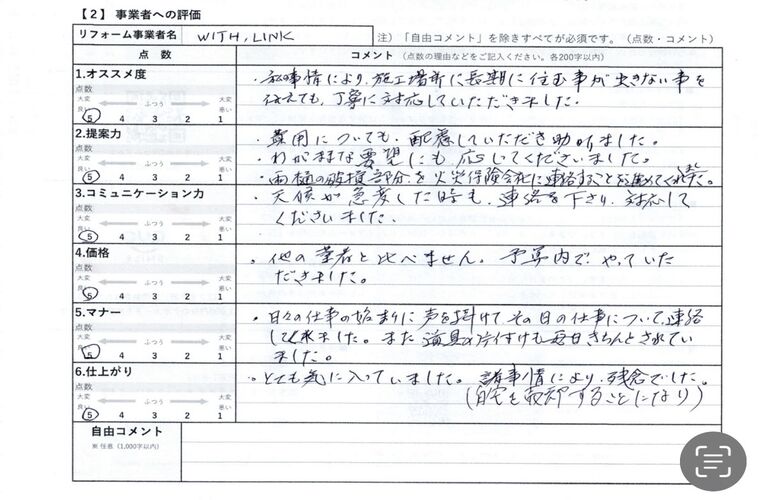 【2】事業者への評価
リフォーム事業者名 WITH, LINK 注)「自由コメント」を除きすべてが必須です。(点数・コメント)
点数 コメント(点数の理由などをご記入ください。各200字以内)
1.オススメ度
点数
大変良い ふつう 大変悪い
5 4 3 2 1
・私事情により、施工場所に長期に住む事が出きない事を
伝えても、丁寧に対応していただきました。
2.提案力
点数
大変良い ふつう 大変悪い
5 4 3 2 1
・費用についても、配慮していただき助かりました。
・わがままな要望にも応じてくださいました。
・雨樋の破損部分を火災保険会社に連絡することを進めてくれました。
3.コミュニケーション力
点数
大変良い ふつう 大変悪い
5 4 3 2 1
・天候が急変した時も、連絡を下さり、対応して
くださいました。
4.価格
点数
大変良い ふつう 大変悪い
5 4 3 2 1
・他の業者と比べません。予算内でやっていた
だきました。
5.マナー
点数
大変良い ふつう 大変悪い
5 4 3 2 1
・日々の仕事の始まりに声を掛けてその日の仕事について連絡
して来ました。また道具の片付けも毎日きちんとされてい
ました。
6.仕上がり
点数
大変良い ふつう 大変悪い
5 4 3 2 1
・とても気に入っていました。諸事情により、残念でした。
(自宅を売却することになり)
自由コメント
※任意(1,000字以内)